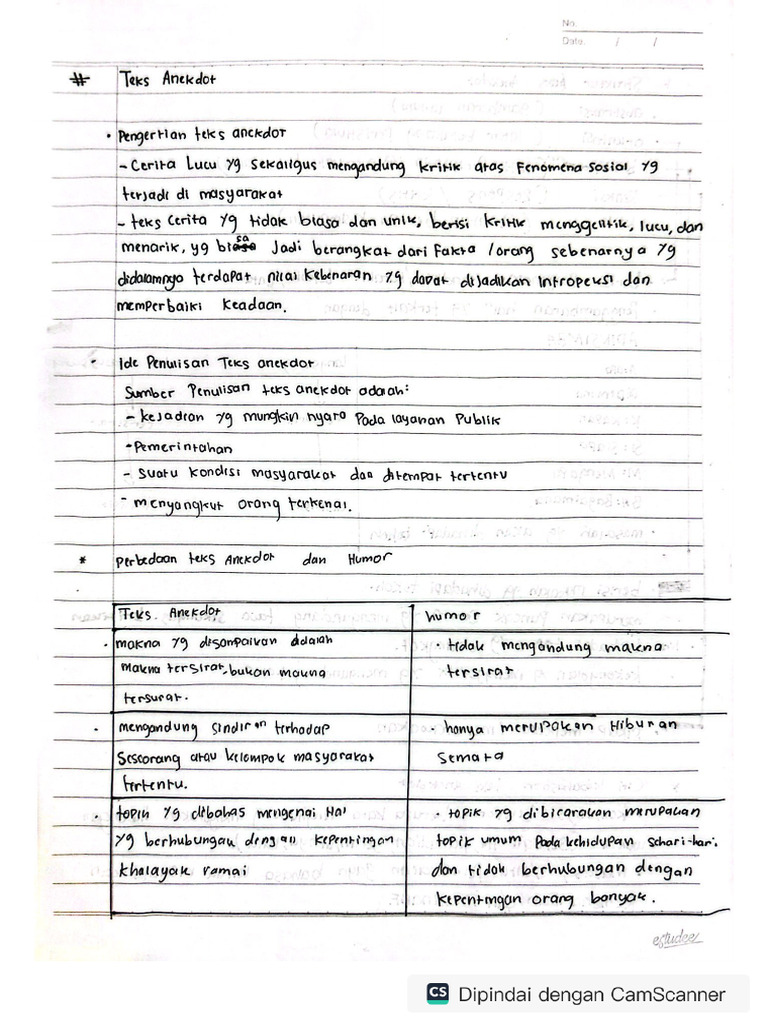 No.
Date. / /
# Teks Anekdot
• Pengertian teks anekdot
- Cerita Lucu yg sekaligus mengandung kritik atas Fenomena sosial yg
terjadi di masyarakat
- teks cerita yg tidak biasa dan unik, berisi kritik menggelitik, lucu, dan
menarik, yg biasa Jadi berangkat dari Fakta /orang sebenarnya yg
didalamnya terdapat nilai kebenaran yg dapat dijadikan Intropeksi dan
memperbaiki keadaan.
• Ide Penulisan Teks anekdot
Sumber Penulisan teks anekdot adalah:
- kejadian yg mungkin nyata Pada layanan Publik
- Pemerintahan
- suatu kondisi masyarakat dan ditempat tertentu
- menyangkut orang terkenal.
* Perbedaan teks Anekdot dan Humor
Teks. Anekdot
humor
• makna yg disampaikan adalah
makna tersirat, bukan makna
tersurat.
• tidak mengandung makna
tersirat
• mengandung sindiran terhadap
Seseorang atau kelompok masyarakat
tertentu.
• hanya merupakan Hiburan
semata
• topik yg dibahas mengenai Hal
yg berhubungan dengan kepentingan
khalayak ramai
• topik yg dibicarakan merupakan
topik umum pada kehidupan sehari-hari.
dan tidak berhubungan dengan
kepentingan orang banyak.
estudee
CS Dipindai dengan CamScanner